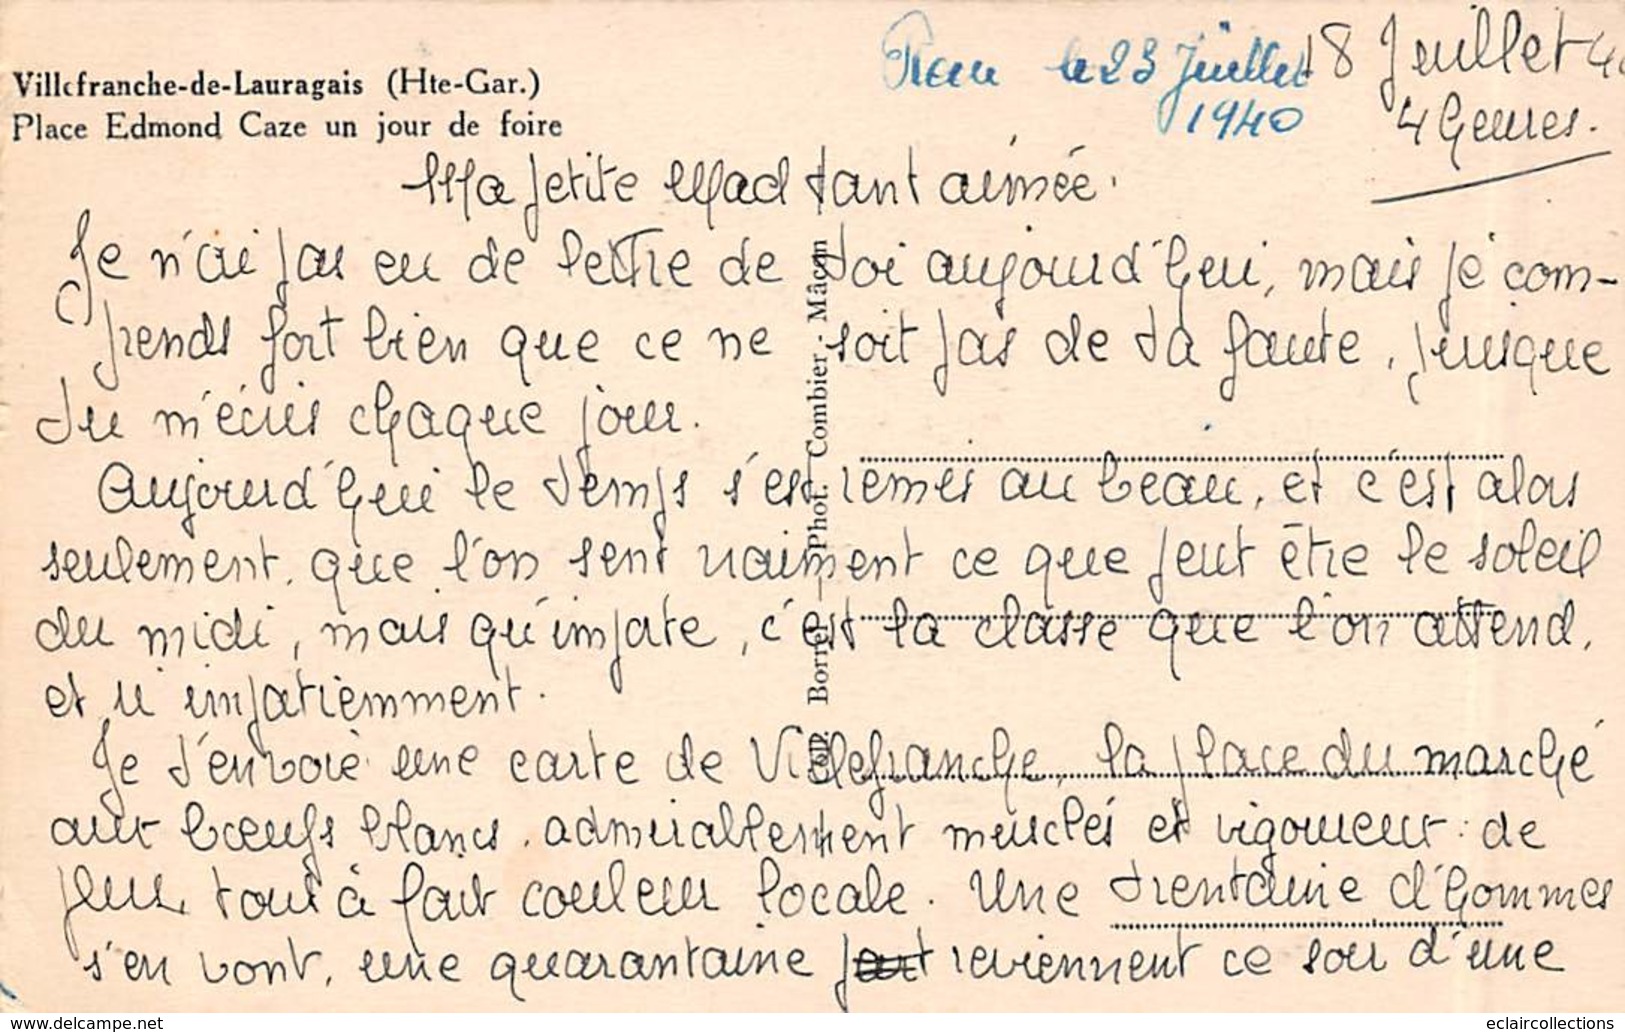 Villefranche-de-Lauragais (Hte-Gar.)
Place Edmond Caze un jour de foire
Reçu le 23 Juillet 1940
18 Juillet 40
4 heures.
Ma petite Mad tant aimée.
Je n'ai pas eu de lettre de toi aujourd'hui, mais je com-
prends fort bien que ce ne soit pas de ta faute, puisque
tu m'écris chaque jour.
Aujourd'hui le temps s'est remis au beau, et c'est alors
seulement, que l'on sent vraiment ce que peut être le soleil
du midi, mais qu'importe, c'est la classe que l'on attend,
et si impatiemment.
Je t'envoie une carte de Villefranche, la place du marché
aux bœufs blancs, admirablement musclés et vigoureux : de
plus, tout à fait couleur locale. Une trentaine d'hommes
s'en vont, une quarantaine part reviennent ce soir d'une
Phot. Combier - Mâcon
eclaircollections
www.delcampe.net